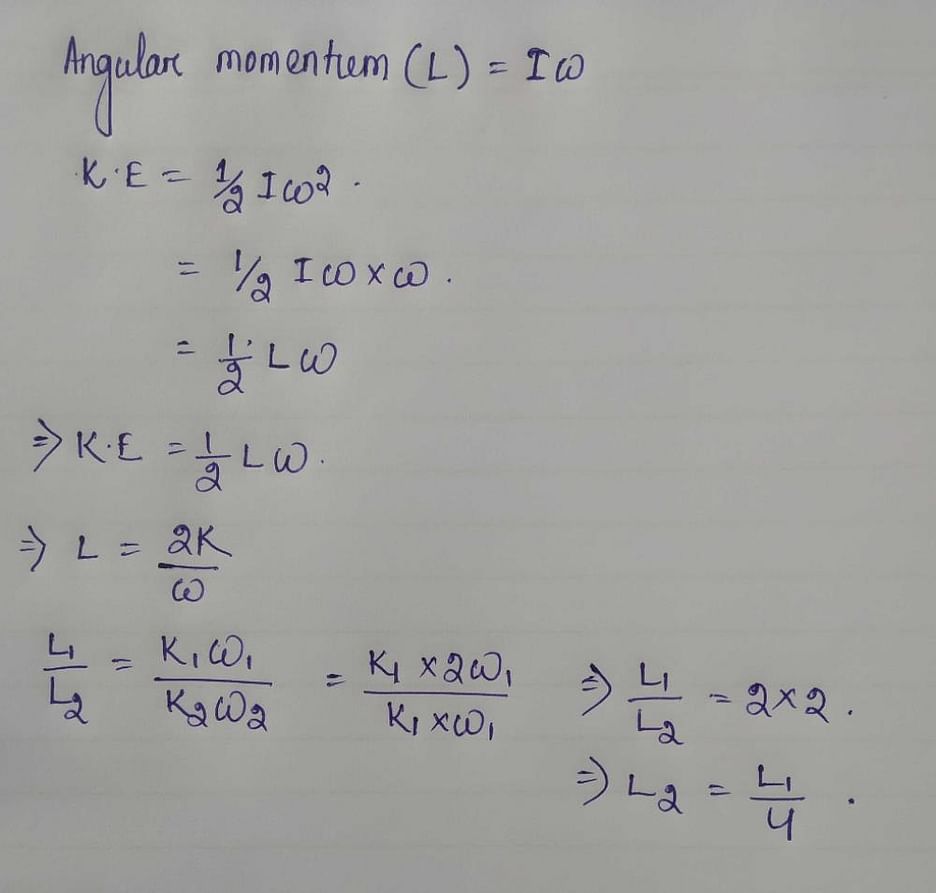 Angular momentum (L) = Iω
K.E = 1/2 Iω2.
= 1/2 Iω×ω.
= 1/2 Lω
⇒ K.E = 1/2 Lω.
⇒ L = 2K/ω
L1/L2 = K1ω1/K2ω2 = K1 × 2ω1/K1 × ω1 ⇒ L1/L2 = 2×2.
⇒ L2 = L1/4.